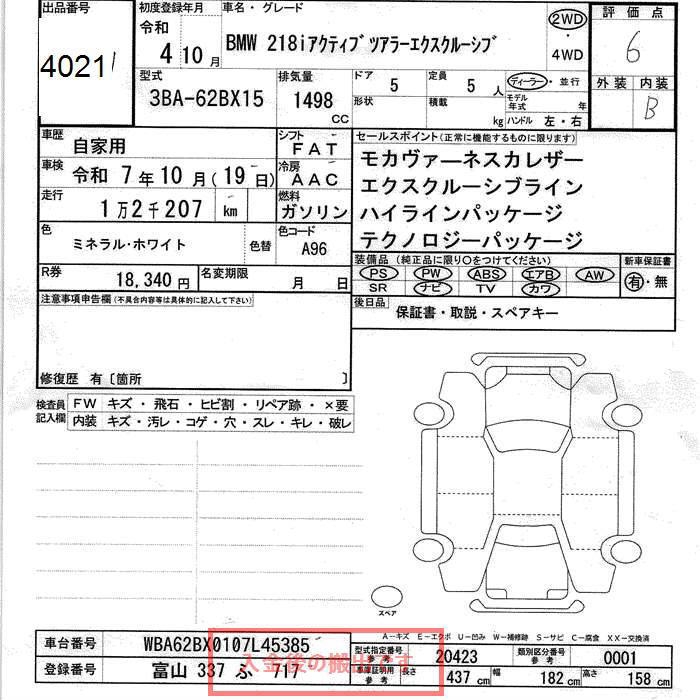 出品番号
40211
初度登録年月
令和
4 10月
車名・グレード
BMW 218iアクティブツアラーエクスクルーシブ
2WD
・
4WD
評価点
6
型式
3BA-62BX15
排気量
1498
CC
ドア 5
定員 5 人
ディーラー・並行
形状
積載 kg
モデル年式 年
ハンドル 左・右
外装 内装
B
車歴 自家用
シフト FAT
車検 令和 7年10月(19日)
冷房 AAC
走行 1万2千207 km
燃料 ガソリン
色 ミネラル・ホワイト 色替
色コード A96
R券 18,340円
名変期限 月 日
セールスポイント(正常に機能するものに限ります)
モカヴァーネスカレザー
エクスクルーシブライン
ハイラインパッケージ
テクノロジーパッケージ
装備品 (純正品に限り○をつけてください)
新車保証書
PS PW ABS エアB AW
有・無
SR ナビ TV カワ
後日品 保証書・取説・スペアキー
注意事項申告欄(不具合内容等は具体的に記入して下さい)
修復歴 有〔箇所 〕
検査員
記入欄
FW キズ・飛石・ヒビ割・リペア跡・×要
内装 キズ・汚レ・コゲ・穴・スレ・キレ・破レ
スペア
A-キズ E-エクボ U-凹み W-補修跡 S-サビ C-腐食 XX-交換済
車台番号 WBA62BX0107L45385
登録番号 富山 337 ふ 717
入金後の搬出です
型式指定番号
参考
20423
類別区分番号
参考
0001
車庫証明用
参考
長さ 437 cm 幅 182 cm 高さ 158 cm